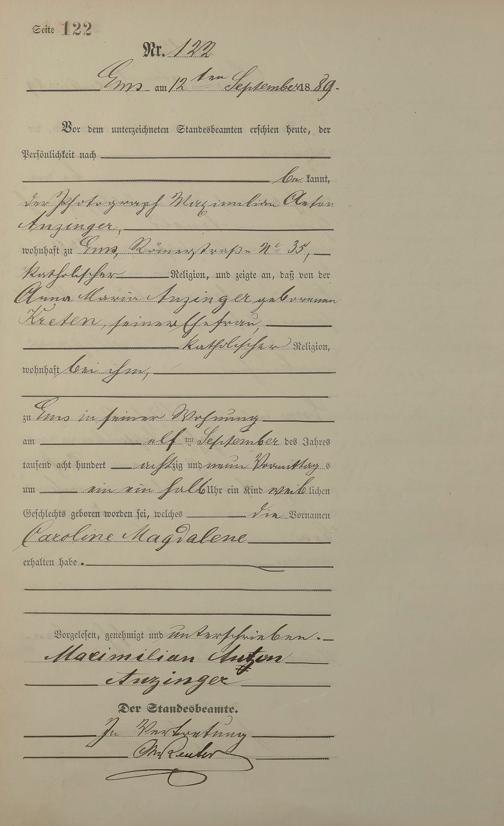 Seite 122
Nr. 122
Ems am 12 ten September 1889.
Vor dem unterzeichneten Standesbeamten erschien heute, der
Persönlichkeit nach
be kannt,
der Photograph Maximilian Anton
Anzinger,
wohnhaft zu Ems, Römerstraße No 35,
katholischer Religion, und zeigte an, daß von der
Anna Maria Anzinger geborenen
Kreten, seiner Ehefrau,
katholischer Religion,
wohnhaft bei ihm,
zu Ems in seiner Wohnung
am elf ten September des Jahres
tausend acht hundert achtzig und neun Vormittags
um ein ein halb Uhr ein Kind weiblichen
Geschlechts geboren worden sei, welches die Vornamen
Caroline Magdalene
erhalten habe.
Vorgelesen, genehmigt und unterschrieben.
Maximilian Anton
Anzinger
Der Standesbeamte.
In Vertretung